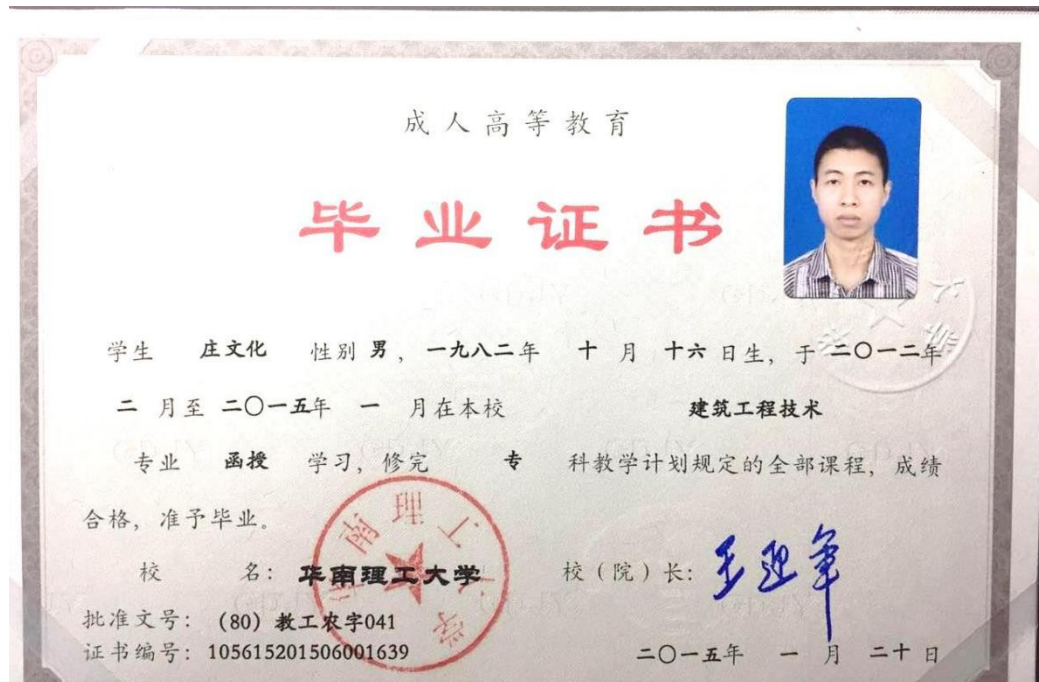 成人高等教育
毕业证书
学生 庄文化 性别 男，一九八二年 十 月 十六 日生，于 二〇一二年
二 月至 二〇一五年 一 月在本校 建筑工程技术
专业 函授 学习，修完 专 科教学计划规定的全部课程，成绩
合格，准予毕业。
校 名：华南理工大学 校（院）长：王迎军
批准文号：(80) 教工农字041
证书编号：105615201506001639 二〇一五年 一 月 二十 日